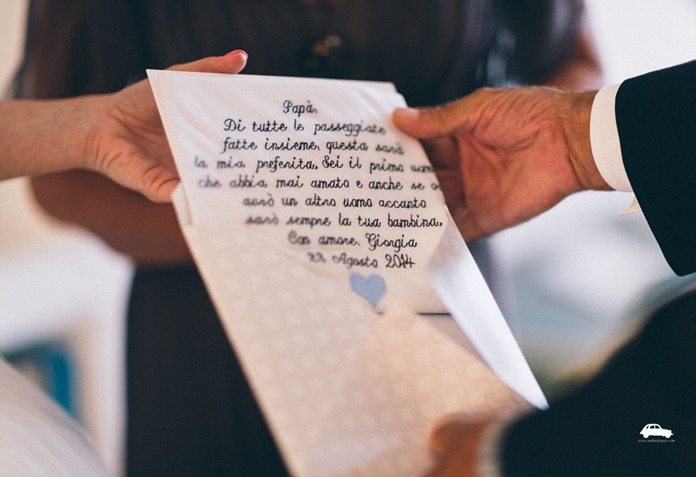 Papà,
Di tutte le passeggiate
fatte insieme, questa sarà
la mia preferita. Sei il primo
che abbia mai amato e anche se
avrò un altro uomo accanto
sarò sempre la tua bambina.
Con amore, Giorgia
Agosto 2014